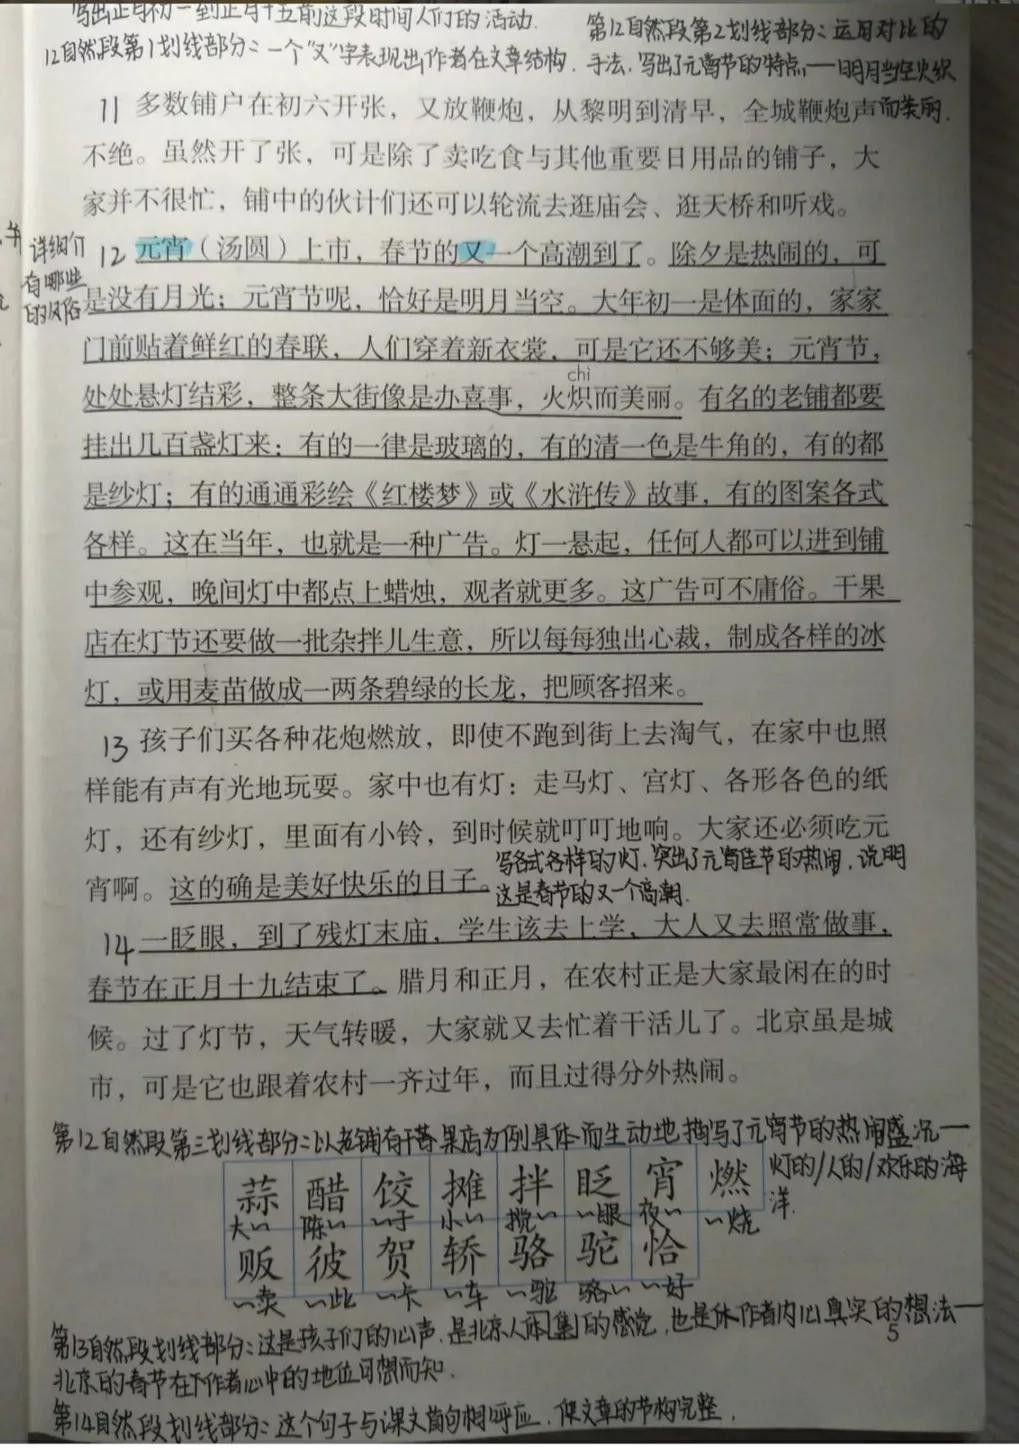 写出正月初一到正月十五前这段时间人们的活动.
12自然段第1划线部分:一个“又”字表现出作者在文章结构.
第12自然段第2划线部分:运用对比的
手法,写出了元宵节的特点,——明月当空火炽
而美丽.
11 多数铺户在初六开张，又放鞭炮，从黎明到清早，全城鞭炮声
不绝。虽然开了张，可是除了卖吃食与其他重要日用品的铺子，大
家并不很忙，铺中的伙计们还可以轮流去逛庙会、逛天桥和听戏。
详细介
有哪些
的风俗
12 元宵（汤圆）上市，春节的又一个高潮到了。除夕是热闹的，可
是没有月光；元宵节呢，恰好是明月当空。大年初一是体面的，家家
门前贴着鲜红的春联，人们穿着新衣裳，可是它还不够美；元宵节，
chì
处处悬灯结彩，整条大街像是办喜事，火炽而美丽。有名的老铺都要
挂出几百盏灯来：有的一律是玻璃的，有的清一色是牛角的，有的都
是纱灯；有的通通彩绘《红楼梦》或《水浒传》故事，有的图案各式
各样。这在当年，也就是一种广告。灯一悬起，任何人都可以进到铺
中参观，晚间灯中都点上蜡烛，观者就更多。这广告可不庸俗。干果
店在灯节还要做一批杂拌儿生意，所以每每独出心裁，制成各样的冰
灯，或用麦苗做成一两条碧绿的长龙，把顾客招来。
13 孩子们买各种花炮燃放，即使不跑到街上去淘气，在家中也照
样能有声有光地玩耍。家中也有灯：走马灯、宫灯、各形各色的纸
灯，还有纱灯，里面有小铃，到时候就叮叮地响。大家还必须吃元
宵啊。这的确是美好快乐的日子。
写各式各样的灯.突出了元宵佳节的热闹,说明
这是春节的又一个高潮.
14 一眨眼，到了残灯末庙，学生该去上学，大人又去照常做事，
春节在正月十九结束了。腊月和正月，在农村正是大家最闲在的时
候。过了灯节，天气转暖，大家就又去忙着干活儿了。北京虽是城
市，可是它也跟着农村一齐过年，而且过得分外热闹。
第12自然段第三划线部分:以老铺和干果店为例具体而生动地描写了元宵节的热闹盛况—
灯的/人的/欢乐的海
洋.
蒜 醋 饺 摊 拌 眨 宵 燃
大~ 陈~ ~子 小~ 搅~ ~眼 夜~ ~烧
贩 彼 贺 轿 骆 驼 恰
~卖 ~此 ~卡 ~车 ~驼 骆~ ~好
第13自然段划线部分:这是孩子们的心声.是北京人团集的感觉,也是作者内心真实的想法—
5
北京的春节在作者心中的地位可想而知.
第14自然段划线部分:这个句子与课文首句相呼应.使文章的节构完整.